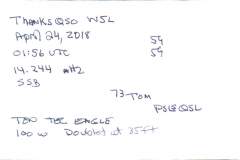 THANKS QSO W5L
April 24, 2018 59
01:56 UTC 59
14.244 MHz
SSB
73 TOM
PSLE QSL
TEN TEC EAGLE
100 W Doublet at 35ft